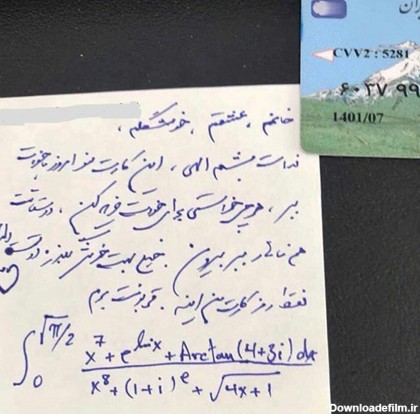 ران
CVV2 : 5281
۶۰۳۷ ۹۹
1401/07
خانمم ، عشقم ، خوشگلم ،
فدات بشم الهی ، این کارت منو امروز با خودت
ببر ، هر چی خواستی برای خودت خرید کن ، دوستاتم
هم ناهار ببر بیرون . خیلی بهت خوش بگذره دوست
فقط رمز کارت من اینه . قربونت برم
∫₀^√π/2 (x⁷ + e^{lnx} + Arctan(4+3i) dx) / (x⁸ + (1+i)^e + √(4x+1))
DownloadeFilm.ir